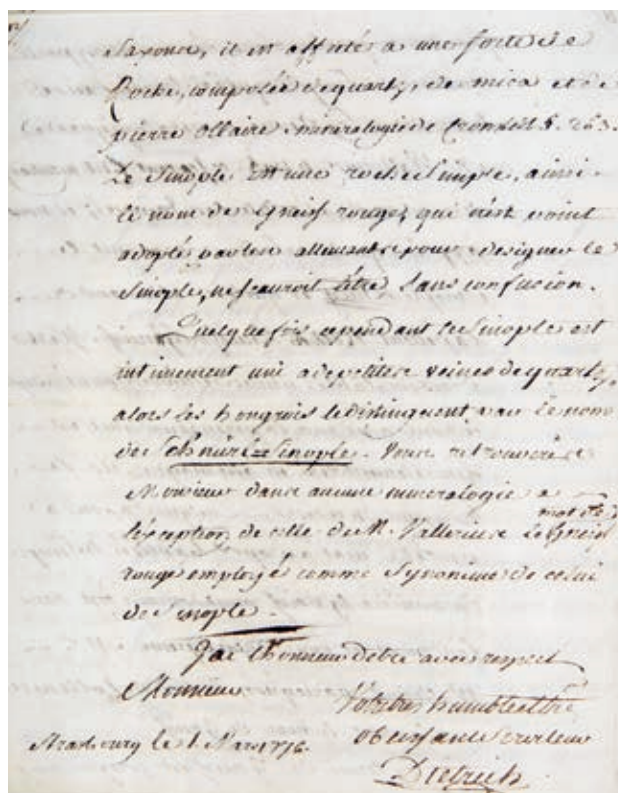 Saxons, il est affecté à une sorte de
Roche, composée de quartz, de mica et de
pierre ollaire mineralogie de Cronstet §. 263.
Le Sinople est une roche simple, ainsi
le nom de Gneiss rouge, qui n'est point
adopté par les allemands pour designer le
Sinople, ne sauroit l'être sans confusion.
Quelque fois cependant le Sinople est
intimement uni a de petites veines de quartz,
alors les hongrois le distinguent par le nom
de Schnürc=Sinople. Vous ne trouverés
Monsieur dans aucune mineralogie a
l'exception de celle de M. Vallerius le mot de Gneiss
rouge employé comme Synonime de celui
de Sinople.
J'ai l'honneur d'etre avec respect
Monsieur
Votre tres humble et tres
Strasbourg le 1. Mars 1776.
Obeissant serviteur
Dietrich